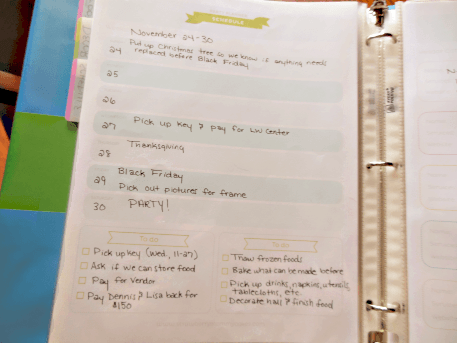 SCHEDULE
November 24-30
24 Put up Christmas tree so we know if anything needs
replaced before Black Friday
25
26
27 Pick up key & pay for LW Center
28 Thanksgiving
29 Black Friday
Pick out pictures for frame
30 PARTY!
TO DO
Pick up key (Wed, 11-27)
Ask if we can store food
Pay for Vendor
Pay Dennis & Lisa back for
$150
TO DO
Thaw frozen foods
Bake what can be made before
Pick up drinks, napkins, utensils,
tablecloths, etc.
Decorate hall & finish food